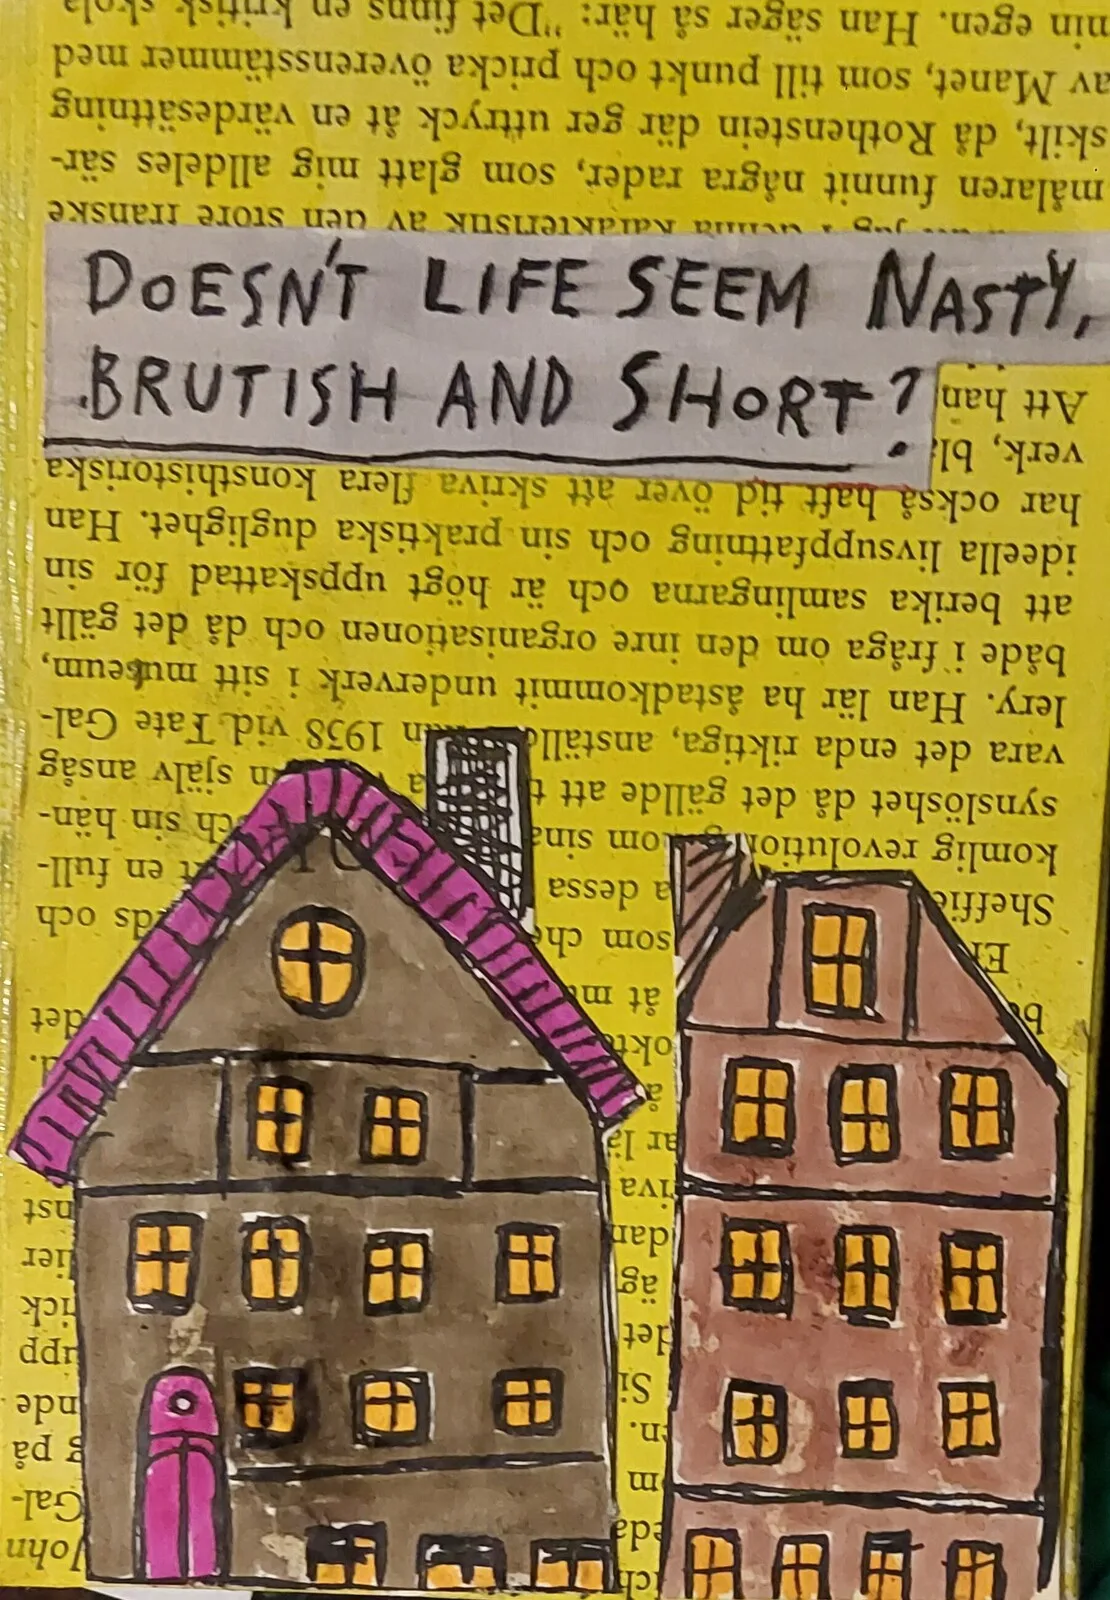 DOESN'T LIFE SEEM NASTY,
BRUTISH AND SHORT?
John
Gal-
på
det
det
som och
Sheffie dessa en full-
komlig revolution som sina sin hän-
synslöshet då det gällde att själv ansåg
vara det enda riktiga, 1938 vid Tate Gal-
lery. Han lär ha åstadkommit underverk i sitt museum,
både i fråga om den inre organisationen och då det gällt
att berika samlingarna och är högt uppskattad för sin
ideella livsuppfattning och sin praktiska duglighet. Han
har också haft tid över att skriva flera konsthistoriska
verk,
Att han
jag i denna karakteristik av den store franske
målaren funnit några rader, som glatt mig alldeles sär-
skilt, då Rothenstein där ger uttryck åt en värdesättning
av Manet, som till punkt och pricka överensstämmer med
min egen. Han säger så här: "Det finns en kritisk skola